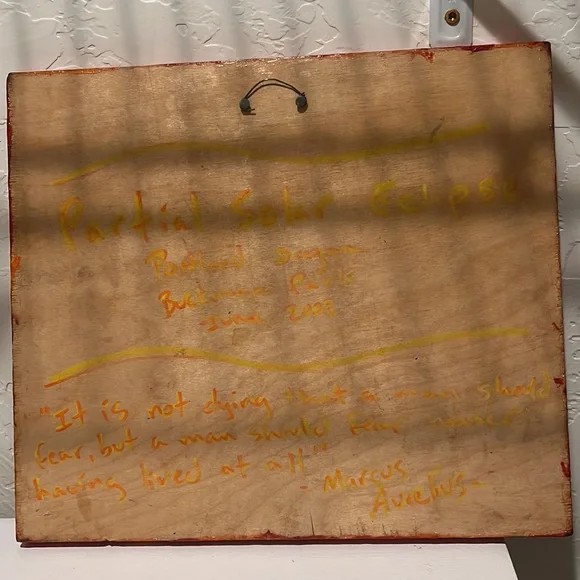 Partial Solar Eclipse
Portland Oregon
Park
June
"It is not dying that a man should
fear, but a man should fear never
having lived at all"
- Marcus
Aurelius -